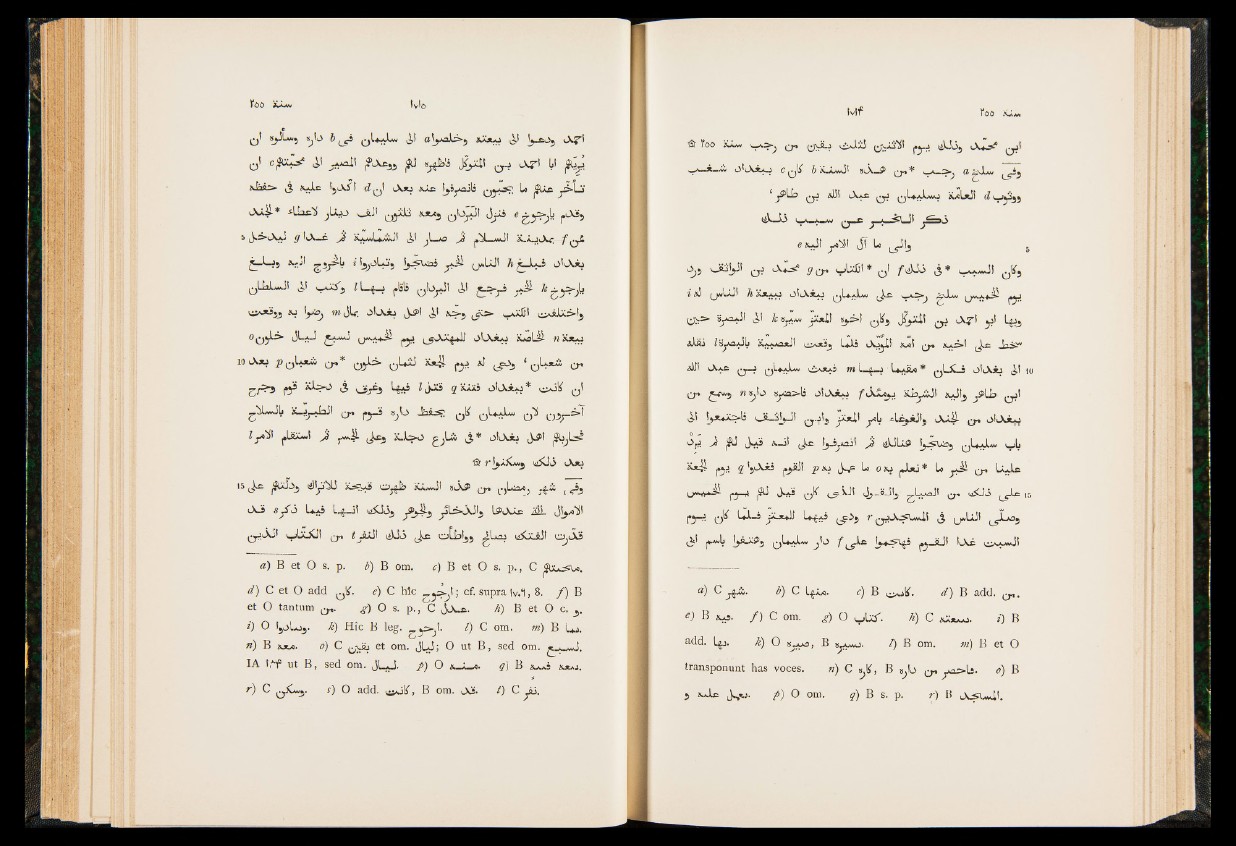 ١٧١۴ سنة ٢٥٥
ابن محمّد وذلك يوم الاثنين لثلث بقين من رجب سنة ٢٥٥ ۞
وفى سلخ a رجب *من هذه السنة b كان c ببغداد شغب
ووثوب d العامّة بسليمان بن عبد الله بن طاهر ‘
ذكر الخبر عن سبب ذلك
والى ما آل الامر اليه e 5
وكان السبب *فى ذلك f ان *الكتاب من g محمّد بن الواثق ورد
يوم الخميس سلخ رجب على سليمان ببغداد ببيعة h الناس له i
وبها ابو احمد بن المتوكّل وكان اخوه المعتزّ سيّره k الى البصرة حين
سخط على اخيه من امّه المؤيّد فلمّا وقعت العصبية بالبصرة l نقله
الى بغداد فكان *مقيما بها m فبعث سليمان بن عبد الله 10
ابن طاهر واليه الشرطة يومئذ f ببغداد فاحضره داره n وسمع من
ببغداد من الجند والغوغاء بامر المعتزّ وابن الواثق فاجتمعوا الى
باب سليمان وضجّوا هنالك ثمّ انصرفوا على انه قيل لهم لم يرد
علينا من الخبر ما *نعلم به o ما عمل به p القوم فغدوا q يوم الجمعة
على ذلك من الصياح والقول الذى كان قيل لهم يوم الخميس 15
وصلّى الناس فى المسجدين r ودعى فيهما للمعتزّ فلمّا كان يوم
السبت غدا القوم فهجموا على f دار سليمان وهتفوا باسم ابى
a) C شهر. b) C منها. c) B كانت. d) B add. من.
e) B فيه. f) C om. g) O كتاب. h) C لبيعته. i) B
add. بها. k) O صيره, B يسيره. l) B om. m) B et O
transponunt has voces. n) C كاره, B فاحضر من داره. o) B
يعمل عليه و. p) O om. q) B s. p. r) B المساجد.
سنة ٢٥٥ ١٧١٥
احمد ودعوا الى بيعته وخلصوا a الى سليمان فى b داره وسألوه ان
يُريهم ابا احمد بن المتوكّل فاظهره لهم ووعدهم المصير الى محبّتهم c ان
تأخّر عنهم ما يحبّون فانصرفوا عنه بعد ان d اكّدوا عليه فى حفظه
وقدم يارجوخ e فنزل البَرَدان ومعه ثلثون الف دينار لاعطاء *الجند
ممّن f بمدينة السلام ثم صار الى الشمّاسيّة ثم غدا g ليدخل 5
بغداد فبلغ h الناس الخبر فضجّوا وتبادروا i بالخروج اليه وبلغ
يارجوخ k الخبر فرجع الى البردان فاقام بها l وكتب الى السلطان
واختلفت الكتب حتى وجّه الى اهل بغداد بمال m رضوا به ووقعت
بيعة n الخاصّة ببغداد للمهتدى يوم الخميس لسبع ليال خلون o
من شعبان ‘ ودعى له يوم الجمعة لثمان خلون *من شعبان p بعد 10
ان كانت *ببغداد فتنة q قتل l فيها وغرق فى دجلة قوم وجرح
آخرون لان سليمان كان يحفظ داره قوم من الطبرية بالسلاح
فحاربهم اهل بغداد *فى شارع دجلة وعلى الجسر ثم استقام الامر l
بعد ذلك وسكنوا r ۞
وفى شهر رمضان من هذه السنة ظهرت قبيحة للاتراك ودلّتهم على 15
الاموال التى عندها والذخائر والجوهر وذلك انها فيما ذكر s قد
قدّرت الفتك بصالح وواطأت على ذلك النفر t من الكتّاب الذين
a) B et O s. p. b) B om. c) B et O s. p., C
d) C et O add كان. e) C hîc ارجوخ; cf. supra ١٧٠٩, 8. f) B
et O tantum من. g) O s. p., C عدل. h) B et O c. و.
i) O وتبادروا. k) Hîc B leg. ارجوخ. l) C om. m) B
n) B معه. o) C بقين et om. ليال; O ut B, sed om. لسبع.
IA ut B, sed om. ليال. p) O منه. q) B
r) C وسكن. s) O add. كانت, B om. قد. t) C نفر.